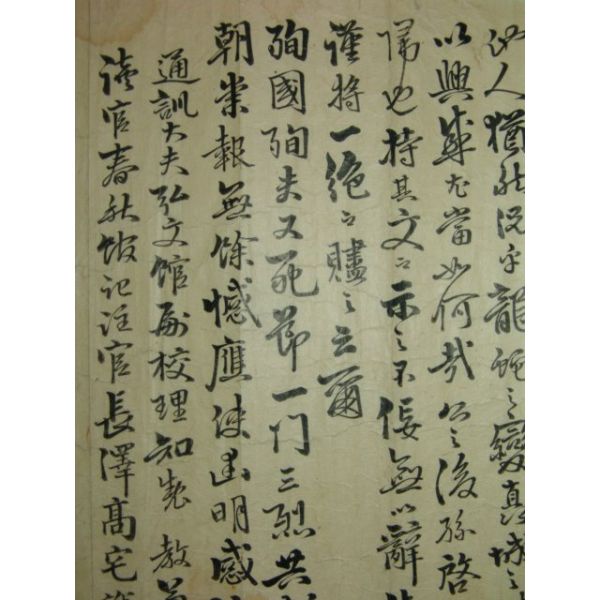 人猶然況乎龍蛇之變真城之
以興感尤當如何哉公之後孫啓
歸也持其文以示之不佞無以辭
謹將一絶以贐之云爾
殉國殉夫又死節一门三烈共
朝崇報無餘憾應使幽明感
通訓大夫弘文館副校理知製教兼
讀官春秋館記注官長澤髙宅謹